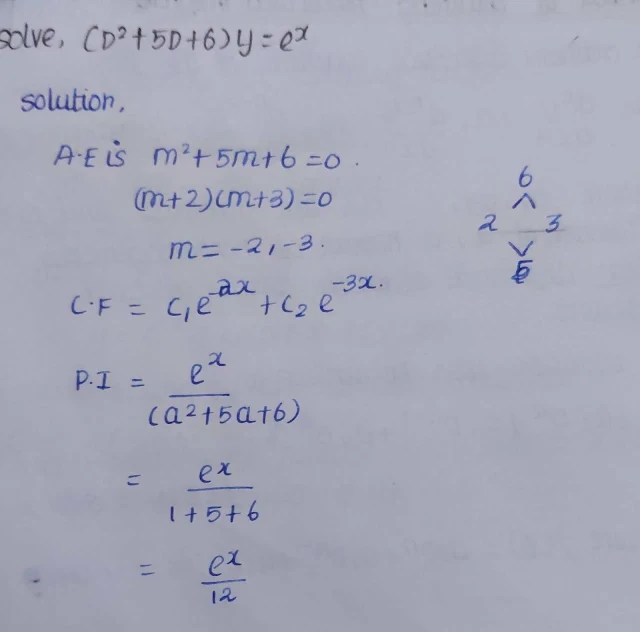 solve, (D²+5D+6)y=eˣ
solution,
A.E is m²+5m+6=0.
(m+2)(m+3)=0
m=-2,-3.
6
2 3
5
C.F = C₁e⁻²ˣ+C₂e⁻³ˣ.
P.I = eˣ/(a²+5a+6)
= eˣ/1+5+6
= eˣ/12